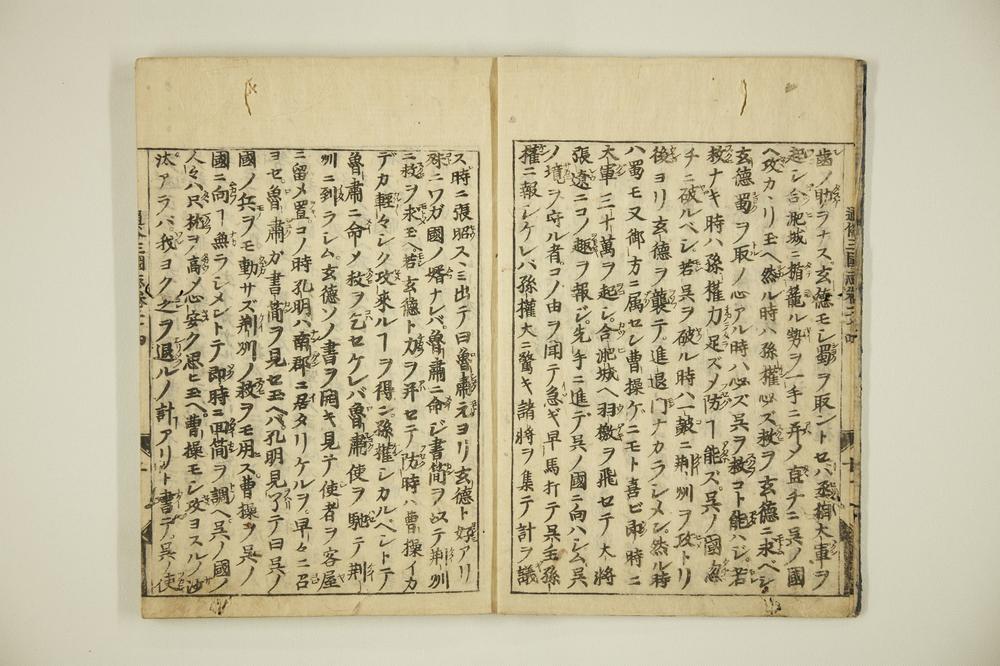 歯ノ助ヲナス、玄德モシ蜀ヲ取ントセバ丞相大軍ヲ
起シ合淝城ニ楯籠ル勢ヲ一手ニ并メ直チニ呉ノ國
ヘ攻カヽリ玉ヘ然ル時ハ孫權必ズ救ヲ玄德ニ求ベシ
玄德蜀ヲ取ノ心アル時ハ必ズ呉ヲ救コト能ハジ若
救ナキ時ハ孫權力足ズメ防ヿ能ズ呉ノ國忽
チニ破ルベシ若呉ヲ破ル時ハ一皷ニ荆州ヲ攻トリ
後ヨリ玄德ヲ襲テ進退門ナカラシメン然ル時
ハ蜀モ又御方ニ属セン曹操ケニモト喜ビ即時ニ
大軍三十萬ヲ起シ合淝城ヘ羽檄ヲ飛セテ大將
張遼ニコノ趣ヲ報ジ先手ニ進テ呉ノ國ニ向ハシム呉
ノ境ヲ守ル者コノ由ヲ聞テ急ギ早馬打テ呉主孫
權ニ報シケレバ孫權大ニ驚キ諸將ヲ集テ計ヲ議
ス時ニ張昭スヽミ出テ曰魯肅元ヨリ玄德ト好アリ
殊ニワガ國ノ婿ナレバ魯肅ニ命ジ書簡ヲ以テ荆州
ニ救ヲ求玉ヘ若玄德ト力ヲ并セテ防時ハ曹操イカ
デカ輕々シク攻來ルヿヲ得ン孫權シカルベシトテ
魯肅ニ命メ救ヲ乞セケレバ魯肅使ヲ馳テ荆
州ニ到ラシム玄德ソノ書ヲ開キ見テ使者ヲ客屋
ニ留メ置コノ時孔明ハ南郡ニ居タリケルヲ早々ニ召
ヨセ魯肅ガ書簡ヲ見セ玉ヘバ孔明見アテ曰呉ノ
國ノ兵ヲモ動サズ荆州ノ救ヲモ用ズ曹操ヲ呉ノ
國ニ向ヿ無ラシメントテ即時ニ回簡ヲ調ヘ呉ノ國ノ
人々ハ只枕ヲ高ノ心安ク思ヒ玉ヘ曹操モシ攻ヨスルノ沙
汰アラバ我ヨク之ヲ退ルノ計アリト書テ呉ノ使